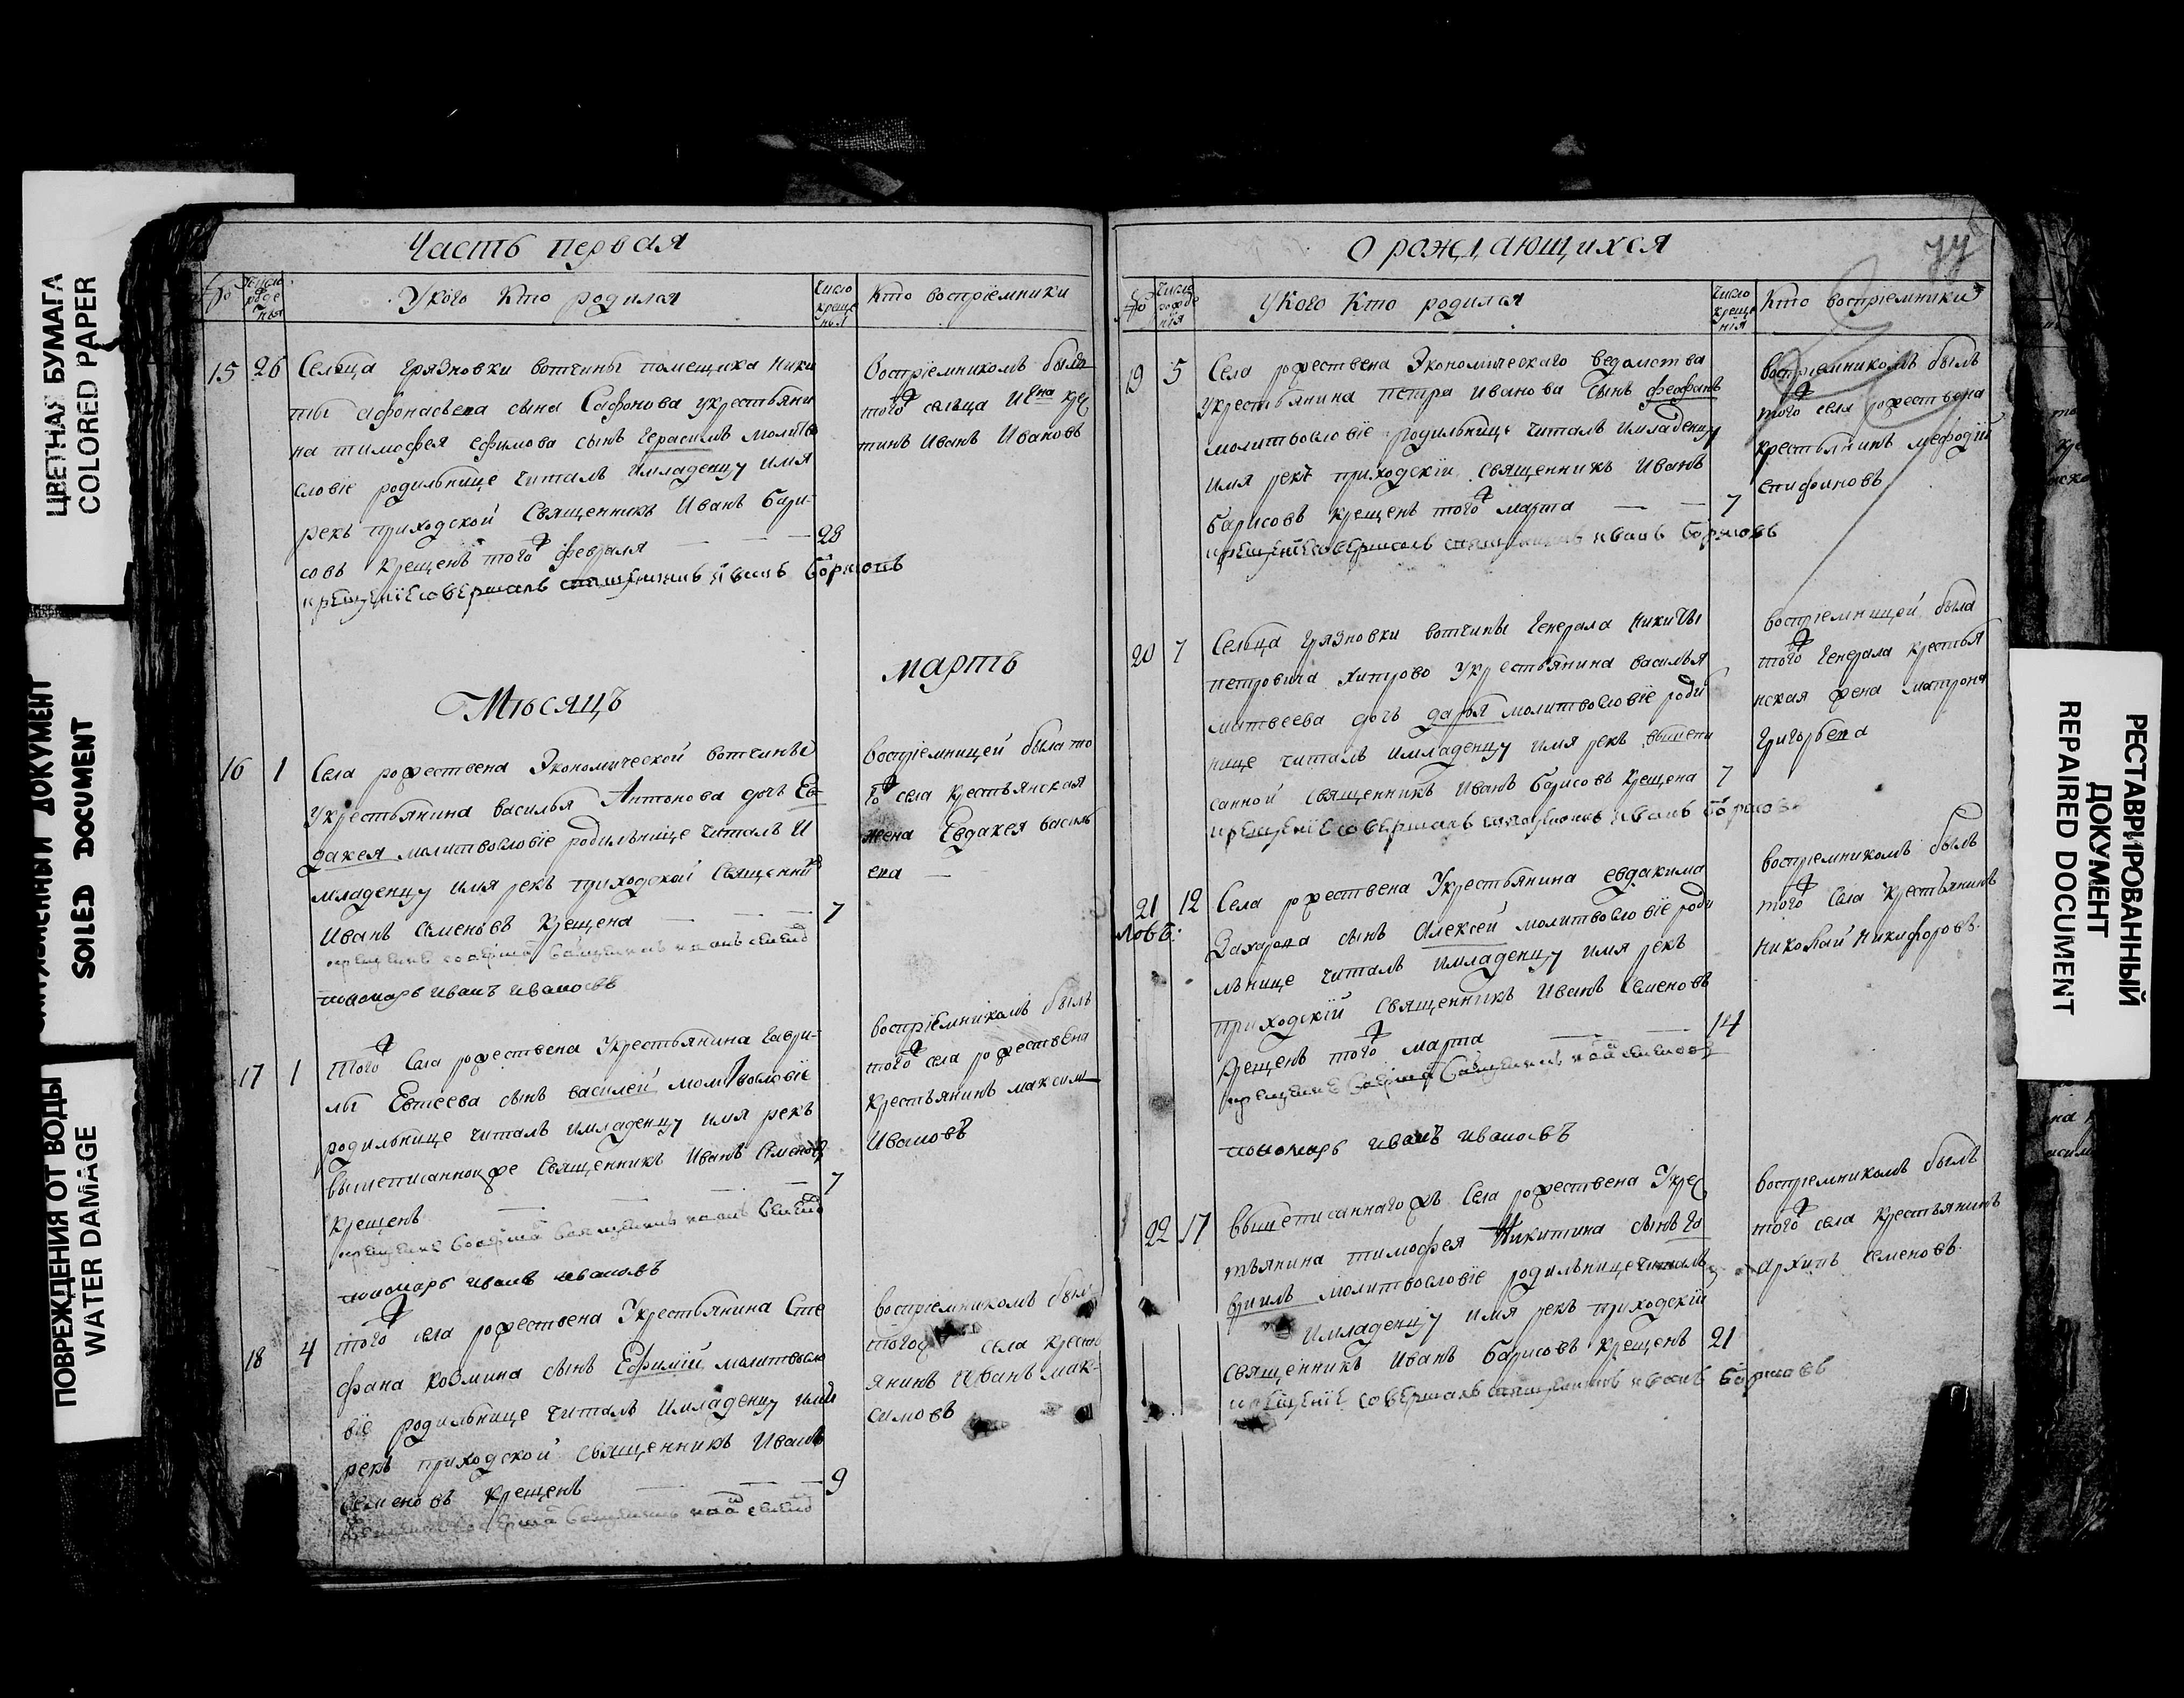 ЦВЕТНАЯ БУМАГА
COLORED PAPER
ДОКУМЕНТ
SOILED DOCUMENT
ПОВРЕЖДЕНИЯ ОТ ВОДЫ
WATER DAMAGE
Часть первая
У кого кто родился
Число креще нія
Кто воспріемники
15 26 Сельца Грязновки вотчины помещика Ники
ты Афонасьева сына Сафонова у крестьяни
на Тимофея Ефимова сынъ Герасимъ молитво
словіе родильнице читалъ и младенцу имя
рекъ приходской Священникъ Иванъ Бари-
совъ крещенъ того ж февраля 28
крещеніе совершалъ священникъ иванъ борисовъ
Воспріемникомъ былъ
того ж сельца крес
тинъ Иванъ Ивановъ
Мѣсяцъ мартъ
16 1 Села рожествена Экономической вотчины
у крестьянина василья Антонова дочь Ев-
дакея молитвословіе родильнице читалъ и
младенцу имя рекъ приходской священни
Иванъ Семеновъ крещена 7
пономарь иванъ ивановъ
Воспріемницей была то
го ж села крестьянская
жена Евдакея василь
ева
17 1 Того ж села рожествена у крестьянина Гаври-
лы Евтеева сынъ василей молитвословіе
родильнице читалъ и младенцу имя рекъ
вышеписанной же священникъ Иванъ Семеновъ
крещенъ 7
пономарь иванъ ивановъ
воспріемникомъ былъ
того ж села рожествена
крестьянинъ максим
Ивановъ
18 4 того ж села рожествена у крестьянина Сте
фана Козмина сынъ Ефимій молитвосло
віе родильнице читалъ и младенцу имя
рекъ приходской священникъ Иванъ
Семеновъ крещенъ 9
воспріемникомъ был
того ж села кресть
янинъ Иванъ мак-
симовъ
О рождающихся
У кого кто родился
Число креще нія
Кто воспріемники
19 5 Села рожествена Экономическаго ведомства
у крестьянина петра иванова сынъ феофанъ
молитвословіе родильнице читалъ и младенцу
имя рекъ приходскій священникъ Иванъ
Барисовъ крещенъ того ж марта 7
крещеніе совершалъ священникъ иванъ борисовъ
воспріемникомъ былъ
того ж села рожествена
крестьянинъ мефодій
епифановъ
20 7 Сельца Грязновки вотчины Генерала Никиты
петровича Хитрово у крестьянина василья
матвеева дочь дарья молитвословіе роди
нице читалъ и младенцу имя рекъ вышепи
санной священникъ Иванъ Барисовъ крещена 7
крещеніе совершалъ священникъ иванъ борисовъ
воспріемницей была
того ж Генерала крестья
нская жена матрона
Григорьева
21 12 Села рожествена у крестьянина евдакима
Захарова сынъ Алексей молитвословіе роди
льнице читалъ и младенцу имя рекъ
приходскій священникъ Иванъ Семеновъ
крещенъ того ж марта 14
пономарь иванъ ивановъ
воспріемникомъ былъ
того ж села крестьянинъ
николай никифоровъ
22 17 вышеписаннагожъ села рожествена у крес
тьянина тимофея Никитина сынъ Га
врилъ молитвословіе родильнице читалъ
и младенцу имя рекъ приходскій
священникъ Иванъ Барисовъ крещенъ 21
крещеніе совершалъ священникъ иванъ борисовъ
воспріемникомъ былъ
того ж села крестьянинъ
архипъ семеновъ
РЕСТАВРИРОВАННЫЙ
ДОКУМЕНТ
REPAIRED DOCUMENT